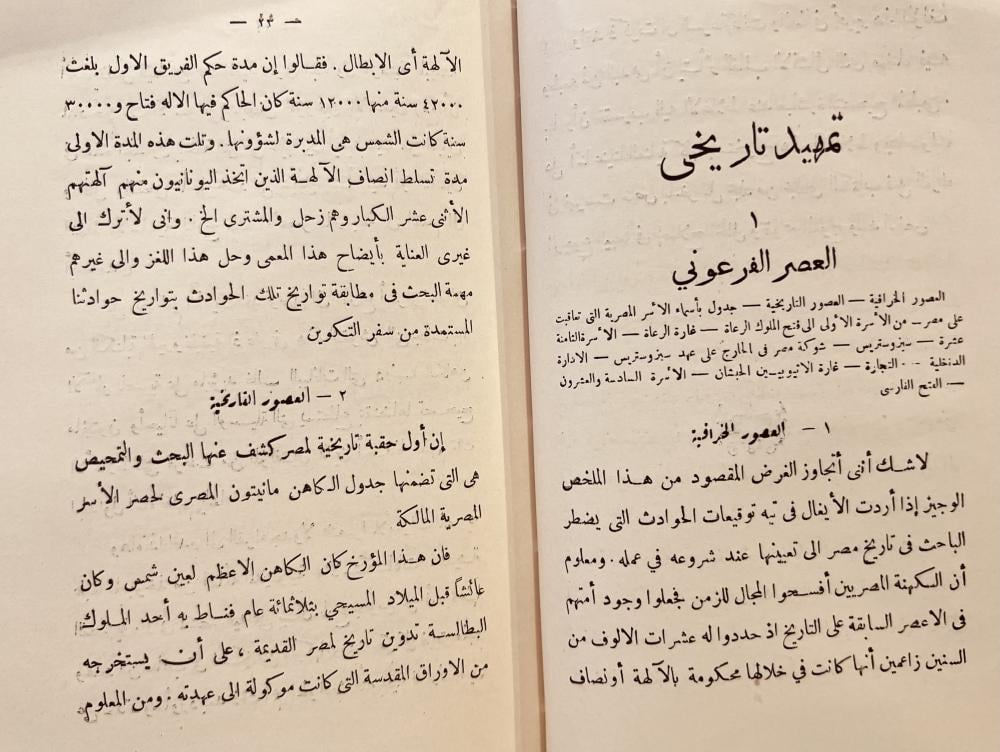 تمهيد تاريخى
١
العصر الفرعوني
العصور الخرافية — العصور التاريخية — جدول بأسماء الأسر المصرية التى تعاقبت
على مصر — من الأسرة الأولى الى فتح الملوك الرعاة — غارة الرعاة — الأسرة الثامنة
عشرة — سيزوستريس — شوكة مصر فى الخارج على عهد سيزوستريس — الادارة
الداخلية — التجارة — غارة الاثيوبيين الحبشان — الأسرة السادسة والعشرون
— الفتح الفارسى
١ — العصور الخرافية
لاشك أننى أتجاوز الغرض المقصود من هذا الملخص
الوجيز إذا أردت الأيغال فى تيه توقيعات الحوادث التى يضطر
الباحث فى تاريخ مصر الى تعيينها عند شروعه في عمله. ومعلوم
أن الكهنة المصريين أفسحوا المجال للزمن فجعلوا وجود أمتهم
فى الاعصر السابقة على التاريخ اذ حددوا له عشرات الالوف من
السنين زاعمين أنها كانت في خلالها محكومة بالآلهة أو نصاف
— ٢٣ —
الآلهة أى الابطال. فقالوا إن مدة حكم الفريق الاول بلغت
٤٢٠٠٠ سنة منها ١٢٠٠٠ سنة كان الحاكم فيها الاله فتاح و٣٠٠٠٠
سنة كانت الشمس هى المدبرة لشؤونها. وتلت هذه المدة الاولى
مدة تسلط انصاف الآلهة الذين اتخذ اليونانيون منهم آلهتهم
الأثنى عشر الكبار وهم زحل والمشترى الخ. وانى لأترك الى
غيرى العناية بأيضاح هذا المعمى وحل هذا اللغز والى غيرهم
مهمة البحث فى مطابقة تواريخ تلك الحوادث بتواريخ حوادثنا
المستمدة من سفر التكوين
٢ — العصور التاريخية
إن أول حقبة تاريخية لمصر كشف عنها البحث والتمحيص
هى التى تضمنها جدول الكاهن مانيتون المصرى لحصر الأسر
المصرية المالكة
فان هذا المؤرخ كان الكاهن الاعظم لعين شمس وكان
عائشاً قبل الميلاد المسيحي بثلاثمائة عام فناط به أحد الملوك
البطالسة تدوين تاريخ لمصر القديمة، على أن يستخرجه
من الاوراق المقدسة التى كانت موكولة الى عهدته. ومن المعلوم